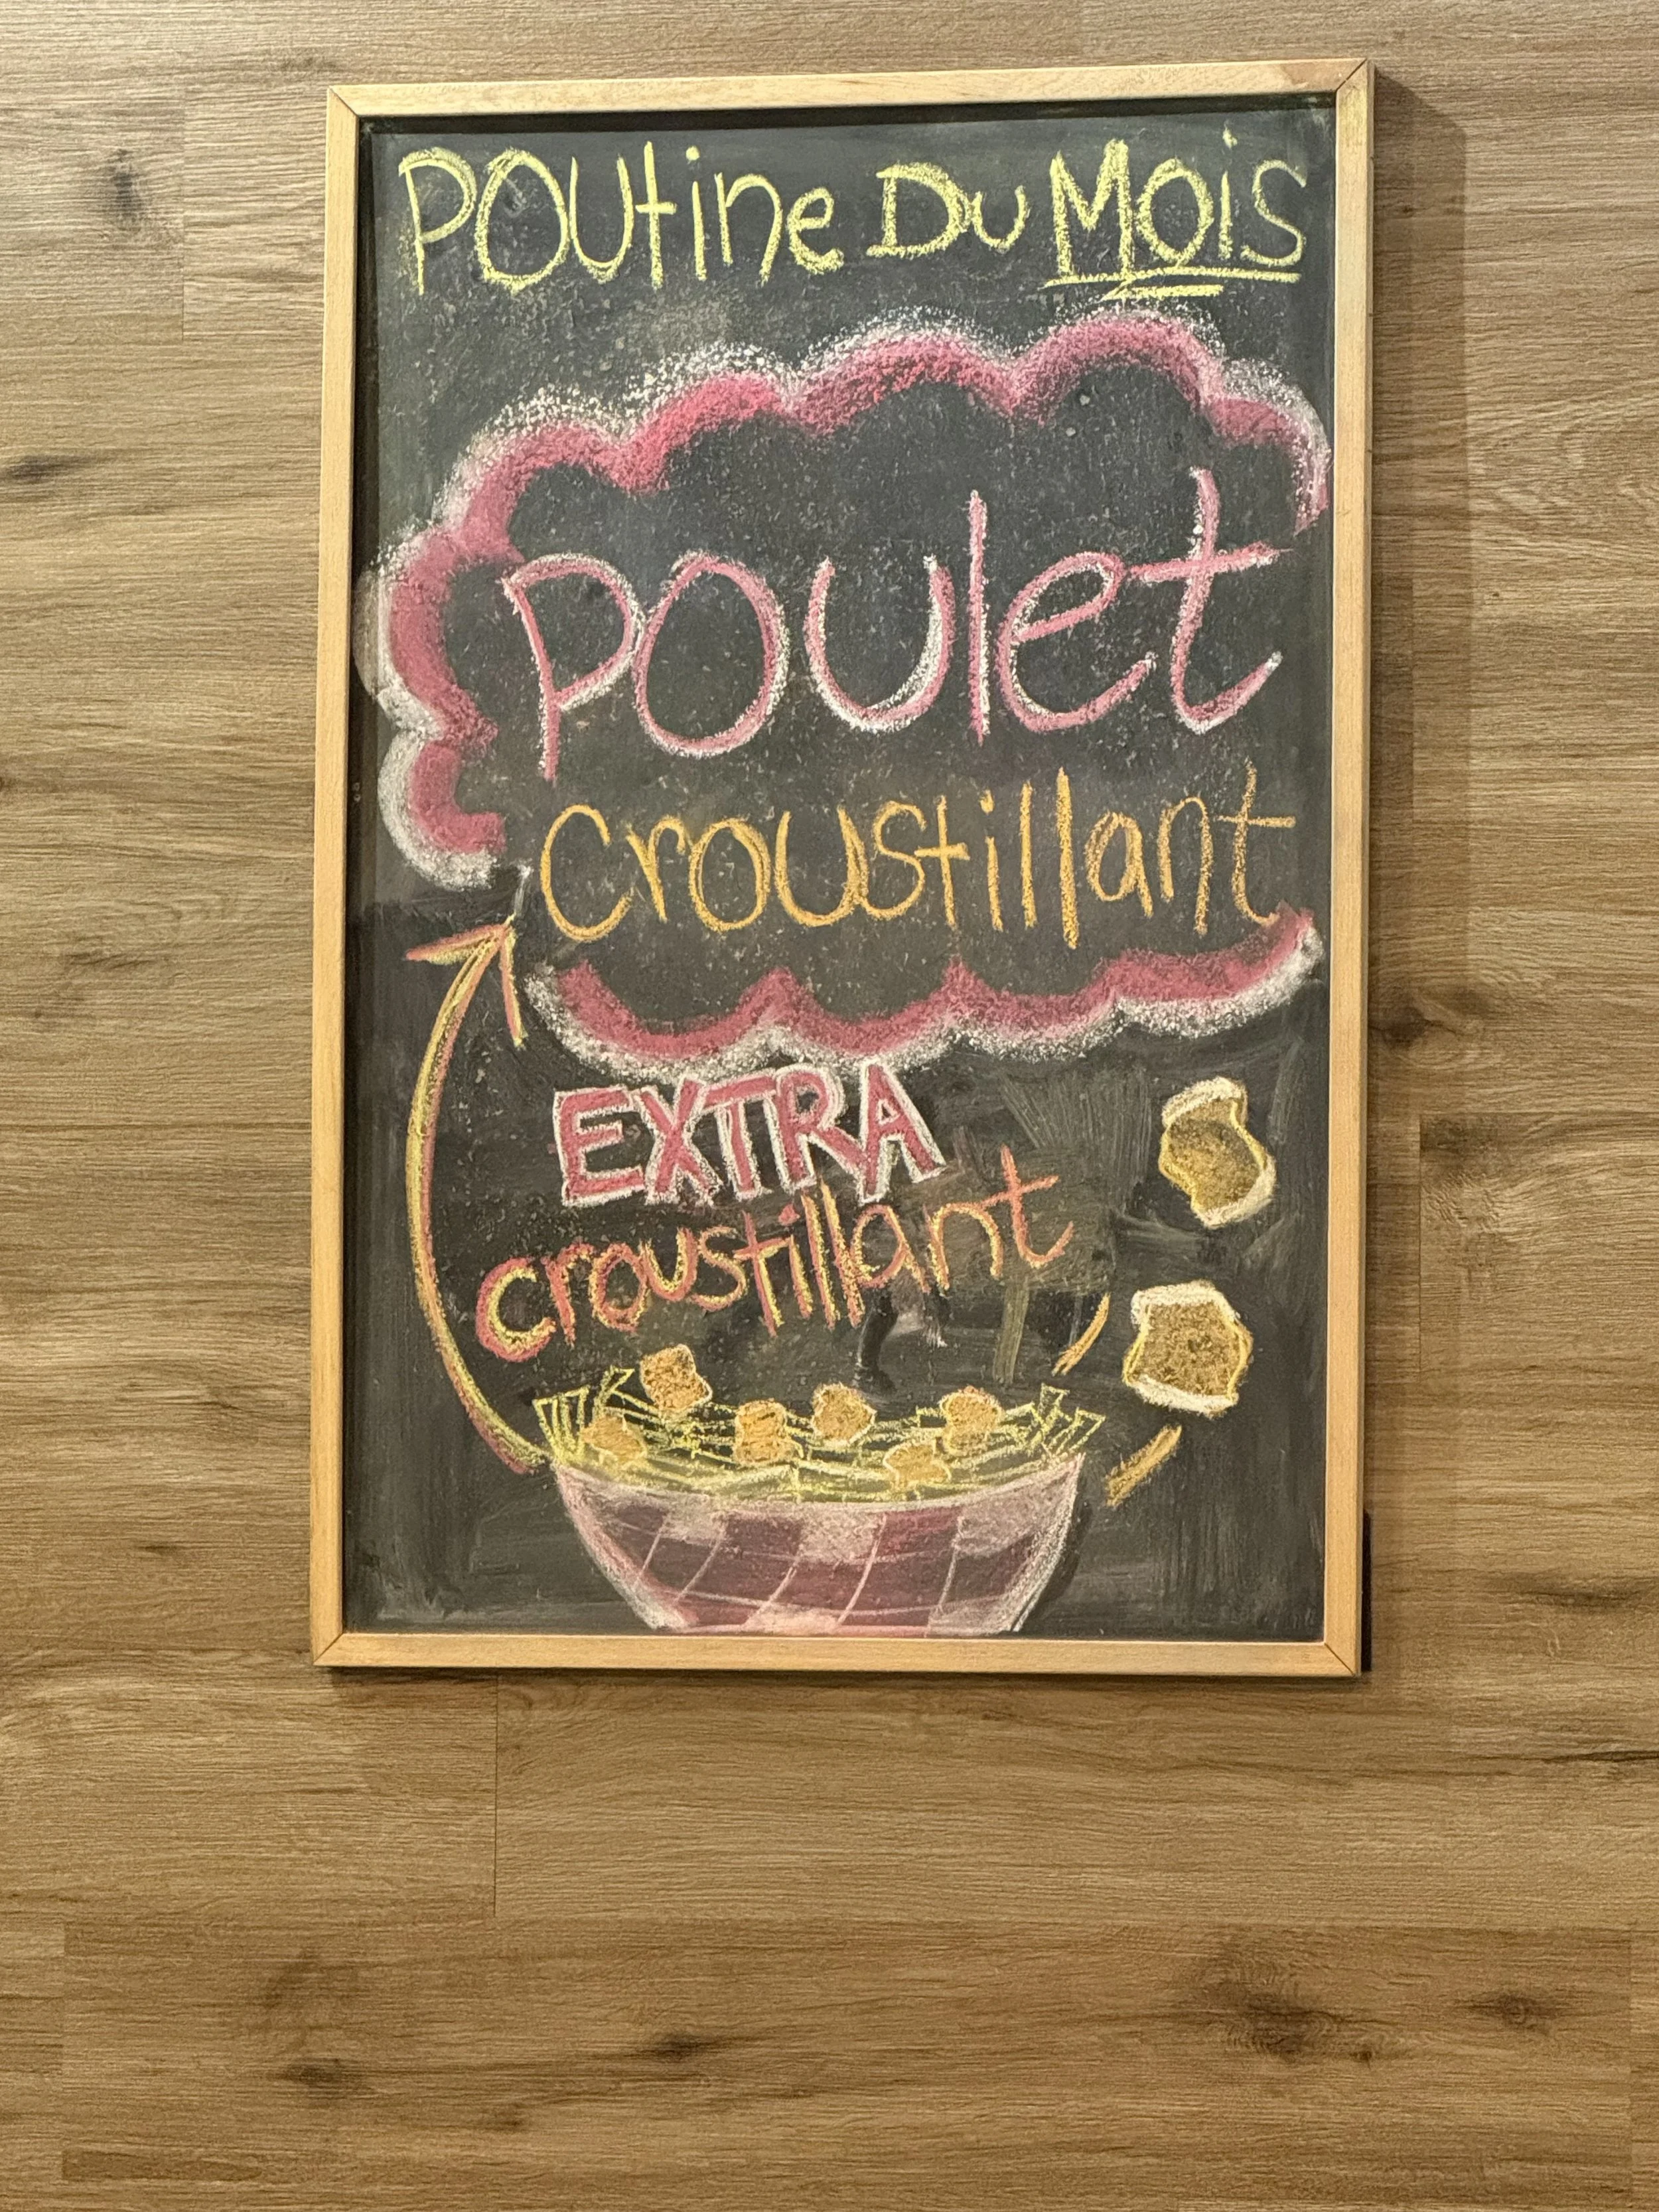 POUtine DU MOis
POUlet
Croustillant
EXTRA
croustillant